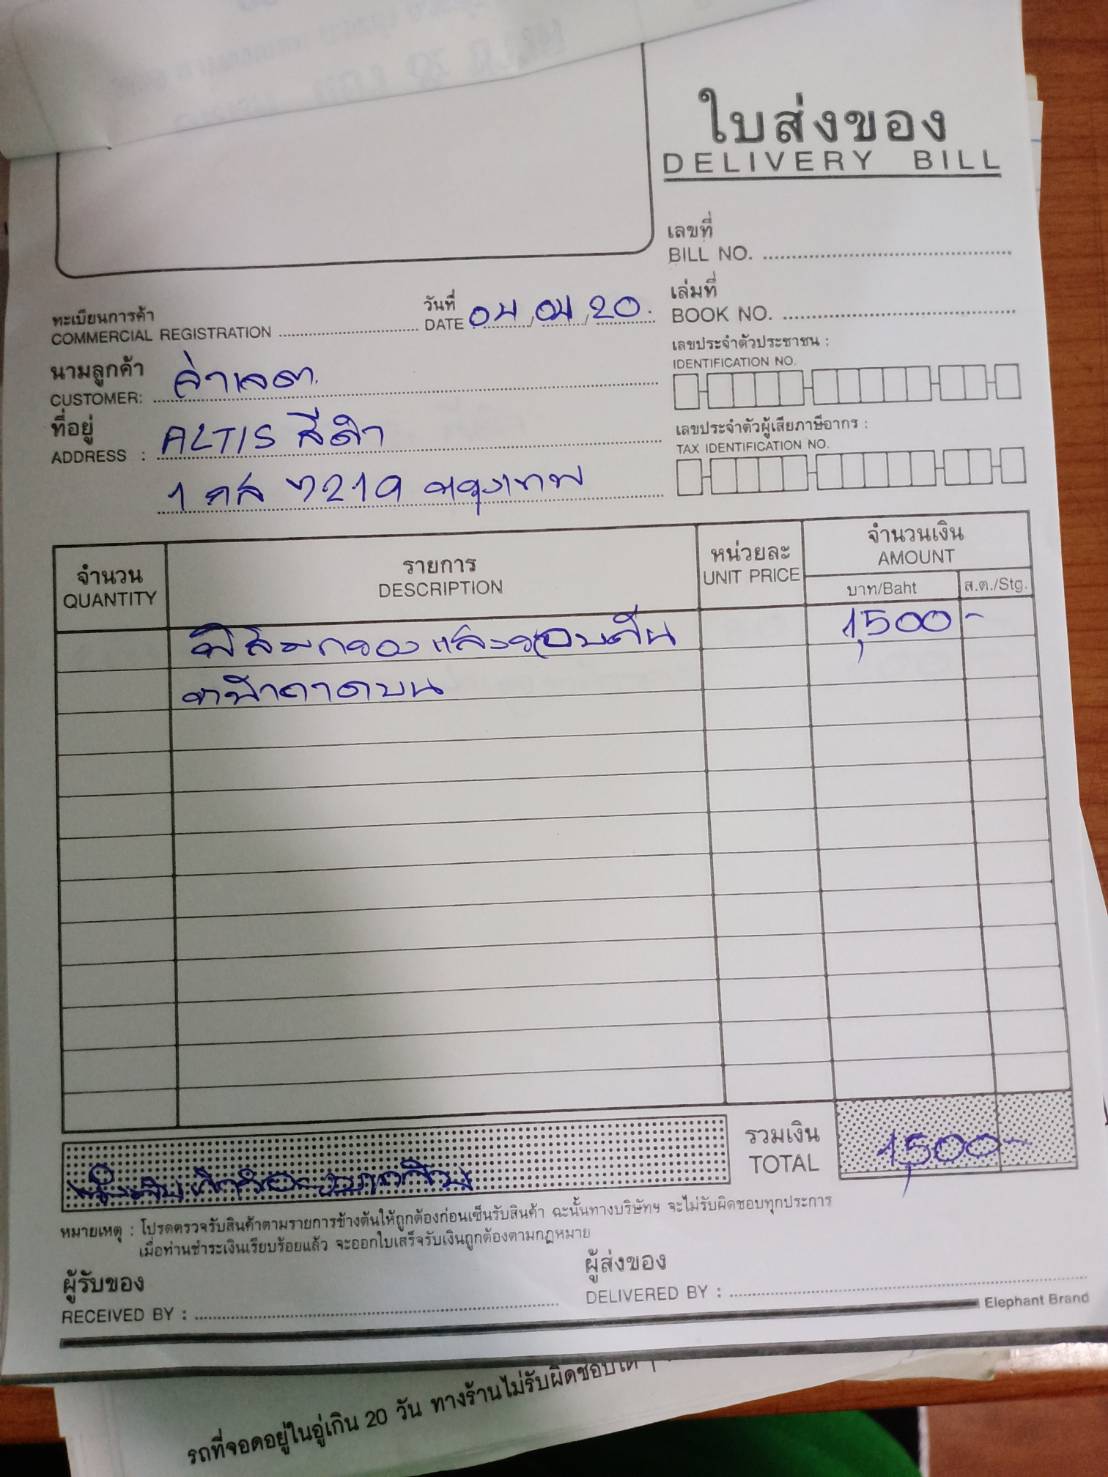 ใบส่งของ
DELIVERY BILL
เลขที่
BILL NO.
ทะเบียนการค้า
COMMERCIAL REGISTRATION
วันที่
DATE 04 04 20
เล่มที่
BOOK NO.
เลขประจำตัวประชาชน :
IDENTIFICATION NO.
นามลูกค้า
CUSTOMER:
ที่อยู่
ADDRESS : ALTIS สีดำ
1 กส 7219 กรุงเทพ
เลขประจำตัวผู้เสียภาษีอากร :
TAX IDENTIFICATION NO.
จำนวน
QUANTITY
รายการ
DESCRIPTION
หน่วยละ
UNIT PRICE
จำนวนเงิน
AMOUNT
บาท/Baht
ส.ต./Stg.
ฟิล์มกรองแสงรอบคัน 1,500-
หน้าคาดบน
รวมเงิน
TOTAL 1,500-
หมายเหตุ : โปรดตรวจรับสินค้าตามรายการข้างต้นให้ถูกต้องก่อนเซ็นรับสินค้า ฉะนั้นทางบริษัทฯ จะไม่รับผิดชอบทุกประการ
เมื่อท่านชำระเงินเรียบร้อยแล้ว จะออกใบเสร็จรับเงินถูกต้องตามกฎหมาย
ผู้รับของ
RECEIVED BY :
ผู้ส่งของ
DELIVERED BY :
Elephant Brand
รถที่จอดอยู่ในอู่เกิน 20 วัน ทางร้านไม่รับผิดชอบใด ๆ